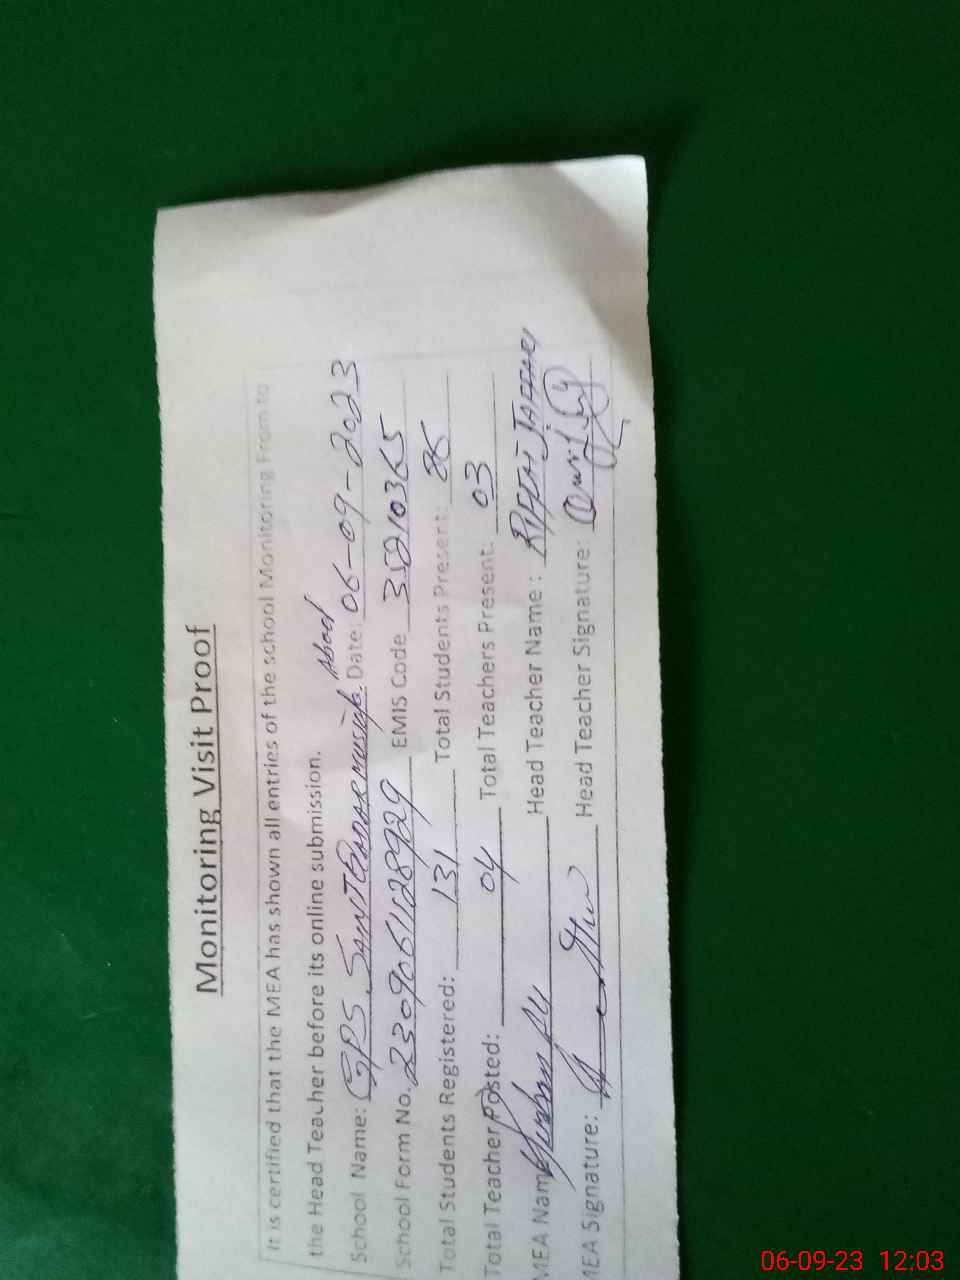 Monitoring Visit Proof
It is certified that the MEA has shown all entries of the school Monitoring From to
the Head Teacher before its online submission.
School Name: GPS. Abad Date: 06-09-2023
School Form No. 2309061128929 EMIS Code 35210365
Total Students Registered: 131 Total Students Present: 86
Total Teacher Posted: 04 Total Teachers Present: 03
MEA Name Head Teacher Name: RIFFAT JAFFARY
MEA Signature: Head Teacher Signature:
06-09-23 12:03